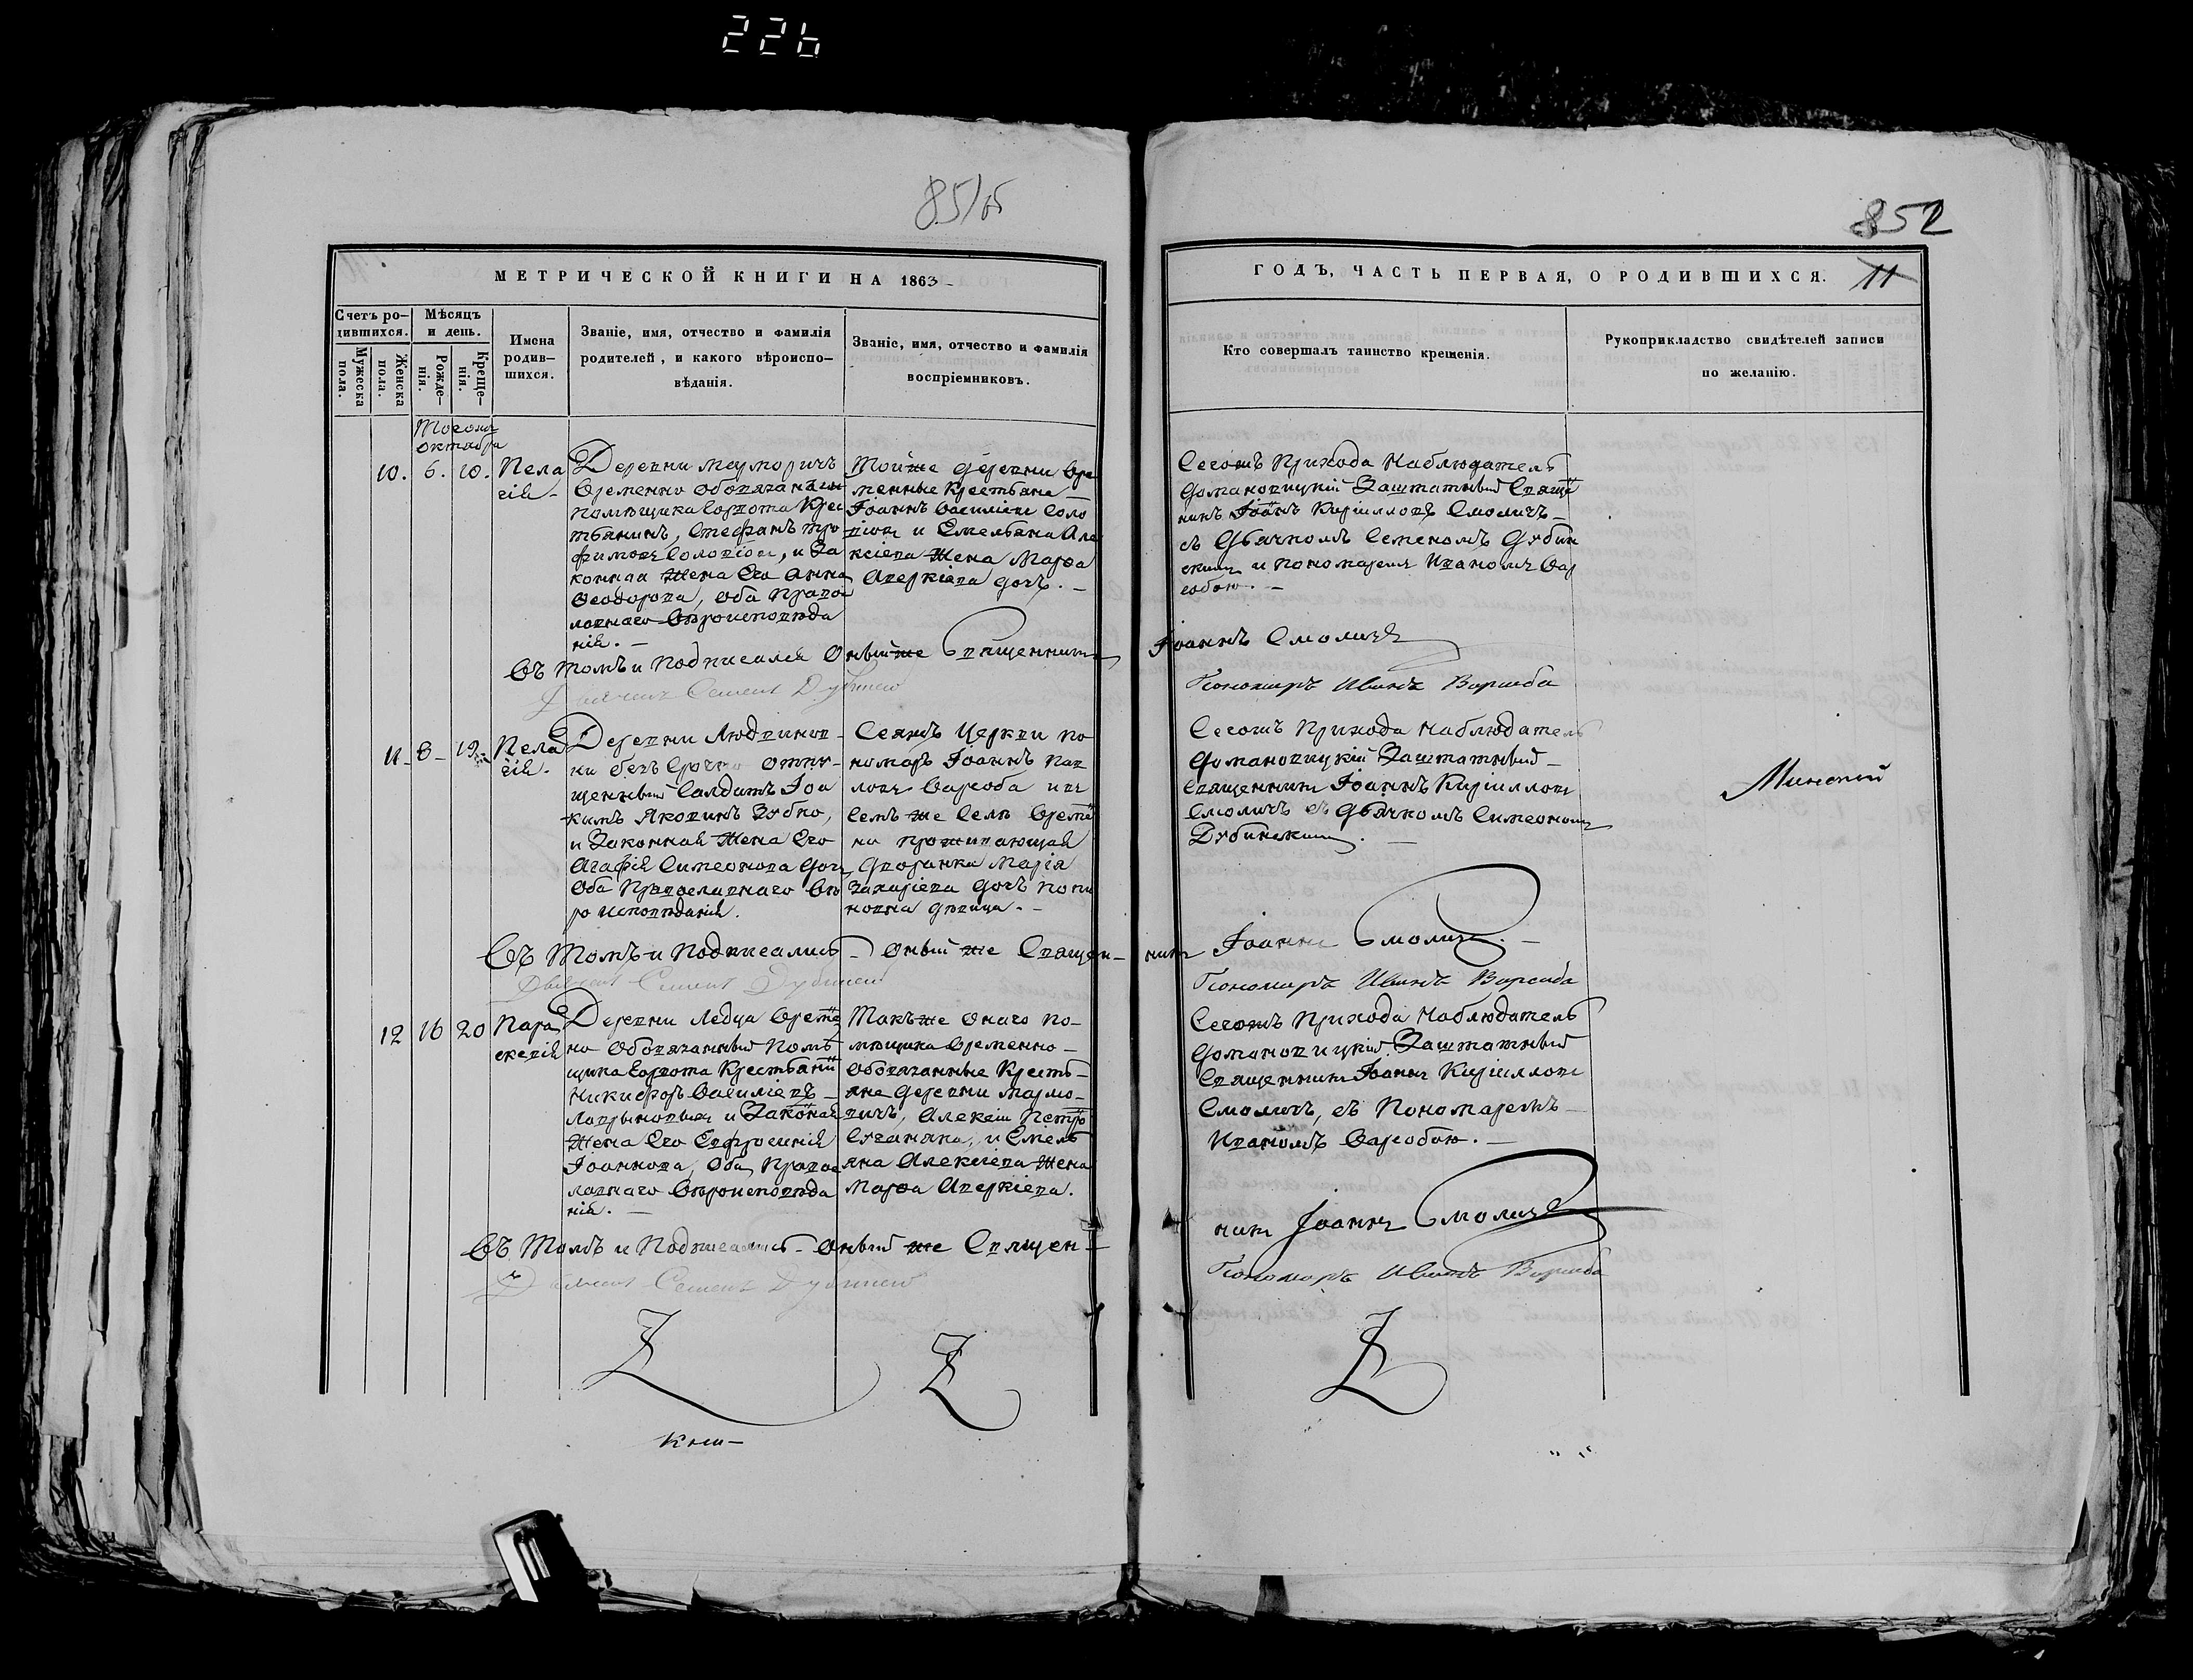 226
851об
852
МЕТРИЧЕСКОЙ КНИГИ НА 1863
ГОДЪ, ЧАСТЬ ПЕРВАЯ, О РОДИВШИХСЯ. 11
Счетъ ро-
дившихся.
Мужеска
пола.
Женска
пола.
Мѣсяцъ
и день.
Рожде-
нія.
Креще-
нія.
Имена
родив-
шихся.
Званіе, имя, отчество и фамилія
родителей, и какого вѣроиспо-
вѣданія.
Званіе, имя, отчество и фамилія
воспріемниковъ.
Кто совершалъ таинство крещенія.
Рукоприкладство свидѣтелей записи
по желанію.
октября
10. 6. 10.
Пела
гія-
Деревни Марморичъ
Временно Обвязанаго
Помѣщика Корвота Крес
тьянинъ, Стефанъ Тро
фимовъ Соловіои, и За
конная Жена Его Анна
Ѳеодорова, Оба Право
лавнаго Вѣроисповѣда
нія. -
Тойже Деревни Вре
менные Крестьяне
Іоаннъ Василіевъ Соло
віои и Емельяна Але
ксіева Жена Марѳа
Аверкіева дочь. -
Сегожъ Прихода Наблюдатель
Домановицкій Заштатный Свяще
никъ Іоанъ Кирилловъ Смоличъ-
съ Дьячкомъ Семеномъ Дубин
скимъ и пономаремъ Иваномъ Вар
собою. -
Въ томъ и Подписался Оныйже Священникъ Іоаннъ Смоличъ
Дьячекъ Семенъ Дубинск
Пономарь Иванъ Варсоба
11- 8- 19-
Пела
гія.
Деревни Людвинов-
ки безъ Срочно Отпу-
щенный Салдатъ Іоа
кимъ Яковинъ Зубко,
и Законная Жена Его
Агафія Симеонова Дочь
Оба Православнаго Вѣ
ро исповѣданія.
Сеяжъ Церкви по
номарь Іоаннъ Пав
ловъ Варсоба и въ
Семъ же Селѣ Време
но проживающая
Дворанка Марія
Захаріева дочь
новна дѣвица. -
Сегожъ Прихода Наблюдатель
Домановицкій Заштатный-
Священникъ Іоаннъ Кирилловъ
Смоличъ съ Дьячкомъ Симеономъ
Дубинскимъ. -
Минской
Въ Томъ и Подписались - Оный же Священ-никъ Іоаннъ Смоличъ. -
Дьячекъ Семенъ Дубинск
Пономарь Иванъ Варсоба
12 16 20
Пара
скевія
Деревни Ледца Време
но Обвязанный Помѣ
щика Корвота Крестьяни
Никифоръ Василіевъ -
и Законая
Жена Его Евфросинія
Іоаннова, Оба Правос
лавнаго Вѣроисповѣда
нія. -
Такъже Онаго по-
мѣщика Временно-
Обвязанные Кресть-
яне Деревни Мармо-
вичъ, Алексіи Петро
и Емель
яна Алексіева Жена
Марѳа Аверкіева.
Сегожъ Прихода Наблюдатель
Домановицкій Заштатный
Священникъ Іоаннъ Кирилловъ
Смоличъ, съ Пономаремъ-
Иваномъ Варсобою. -
Въ Томъ и Подписались - Оный же Священ-никъ Іоаннъ Смоличъ
Дьячекъ Семенъ Дубинск
Пономарь Иванъ Варсоба